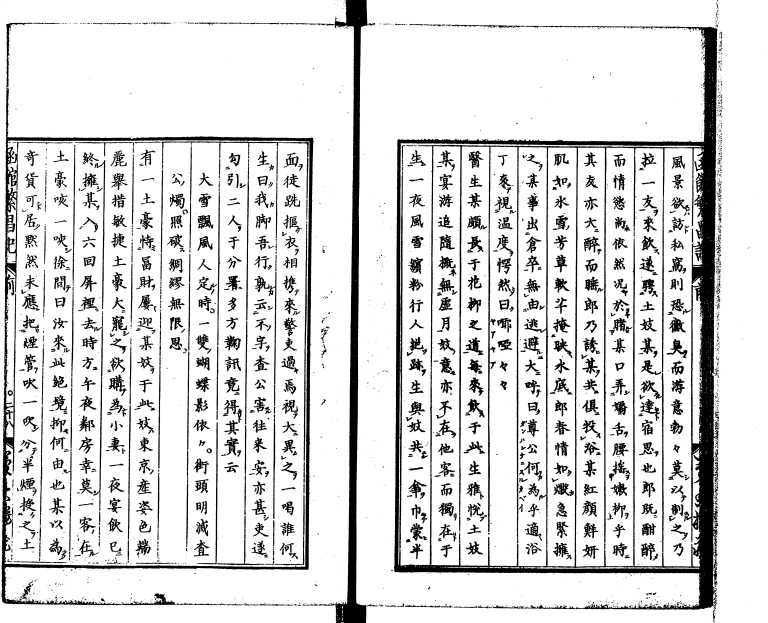 風景欲訪私窩則恐黴臭而游意勃々莫以制之乃
拉一友來飲遂聘土妓某是欲達宿思也郎既酣醉
而情慾漸依然況於膳某口弄嬌舌腰搖嫩柳乎時
其友亦大醉而瞻郎乃誘某共俱投浴某紅顏鮮妍
肌如氷雪芳草軟乎掩映水底郎春情如燬急緊擁
之某事出倉卒無由逃避大呼曰尊公何為乎適浴
丁來視溫度愕然曰哪啞々々
醫生某頗長于花柳之道每來飲于此生雅悅土妓
某宴游追隨概無虛月妓意亦不在他客而獨在于
生一夜風雪繽粉行人絕跡生與妓共一傘巾蒙半
面徒跣摳衣相携來警吏過焉視大異之一喝誰何
生曰我脚吾行孰云不字查公害往來安亦甚吏遂
勾引二人于分署多方鞠訊竟得其實云
大雪飄風人定時一雙蝴蝶影依々街頭明滅查
公燭照破綢繆無限思
有一土豪恃冨財屢迎某妓于此妓東京産姿色端
麗舉措敏捷土豪大寵之欲購為小妻一夜宴飲已
終擁某入六回屏裡去時方午夜鄰房幸莫一客在
土豪咳一咳徐問曰汝來此絕境抑何由也某以為
奇貨可居黙然未應把煙管吹一吹分半煙授之土
函館繁昌記 前 二十八